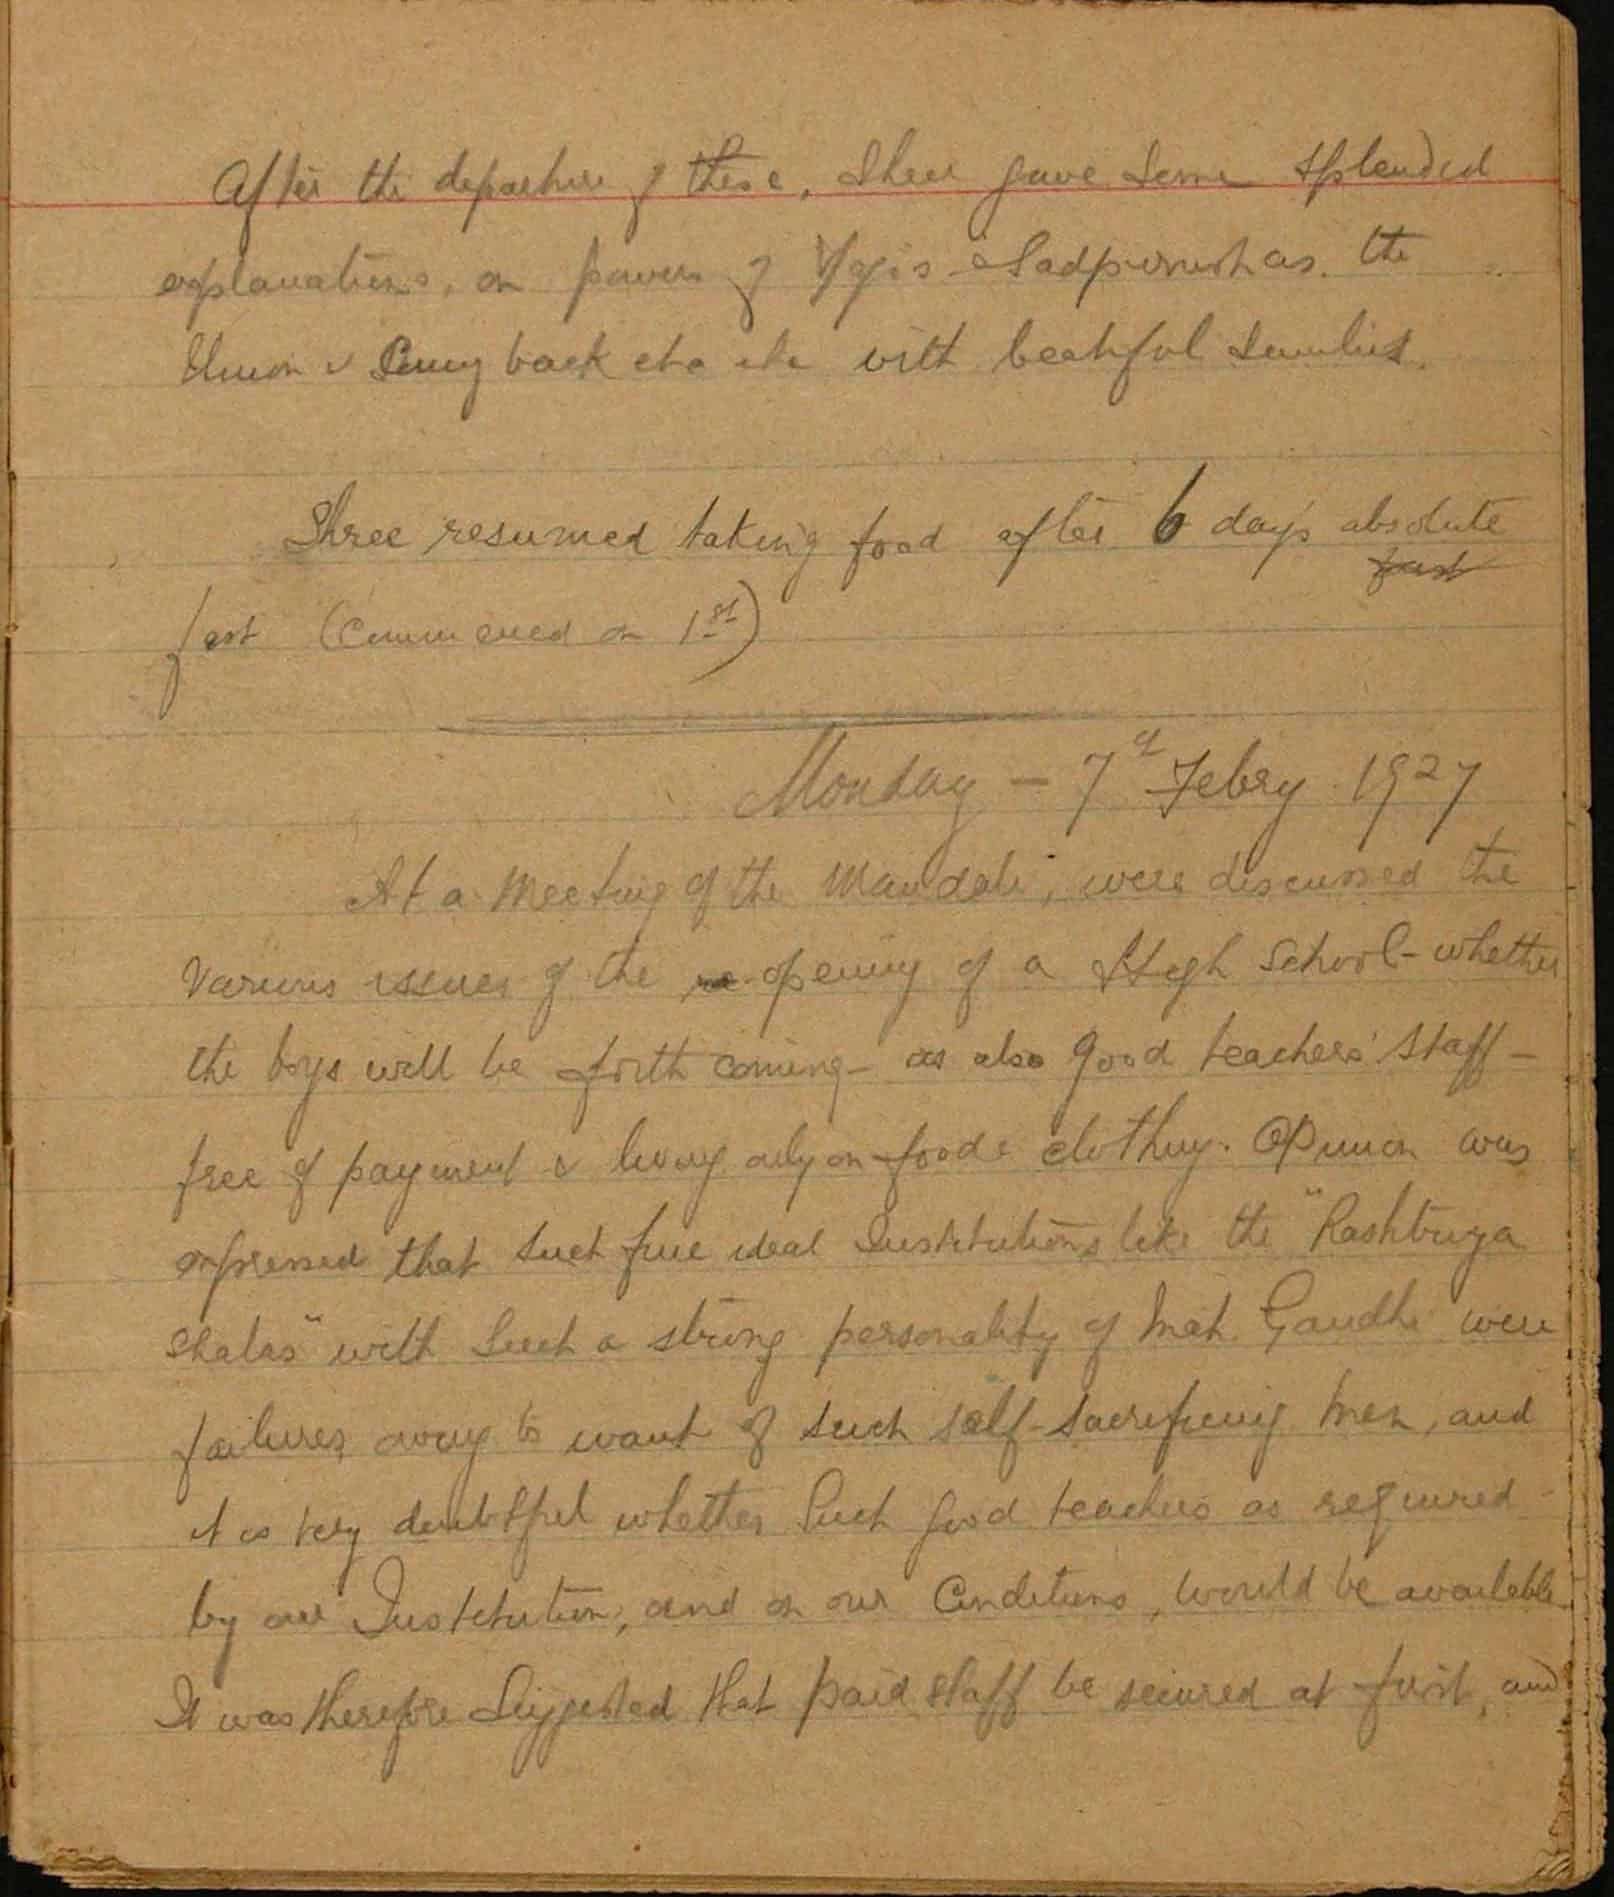 After the departure of these, Shree gave some splended
explanations, on powers of Yogis & Sadpurushas. the
Union & coming back etc etc with beatiful
Shree resumed taking food after 6 day's absolute
fast (commenced on 1st)
Monday - 7th Febry 1927
At a meeting of the Mandali, were discussed the
various issues of the opening of a High School - whether
the boys will be forth coming - as also good teachers' staff -
free of payment & living only on food & clothing. Opinion was
expressed that such fine ideal Institutions like the "Rashtriya
Shalas" with such a strong personality of Mah. Gandhi were
failures owing to want of such self-sacrificing men, and
it is very doubtful whether such good teachers as required
by our Institution, and on our conditions, would be available
It was therefore suggested that paid staff be secured at first, and